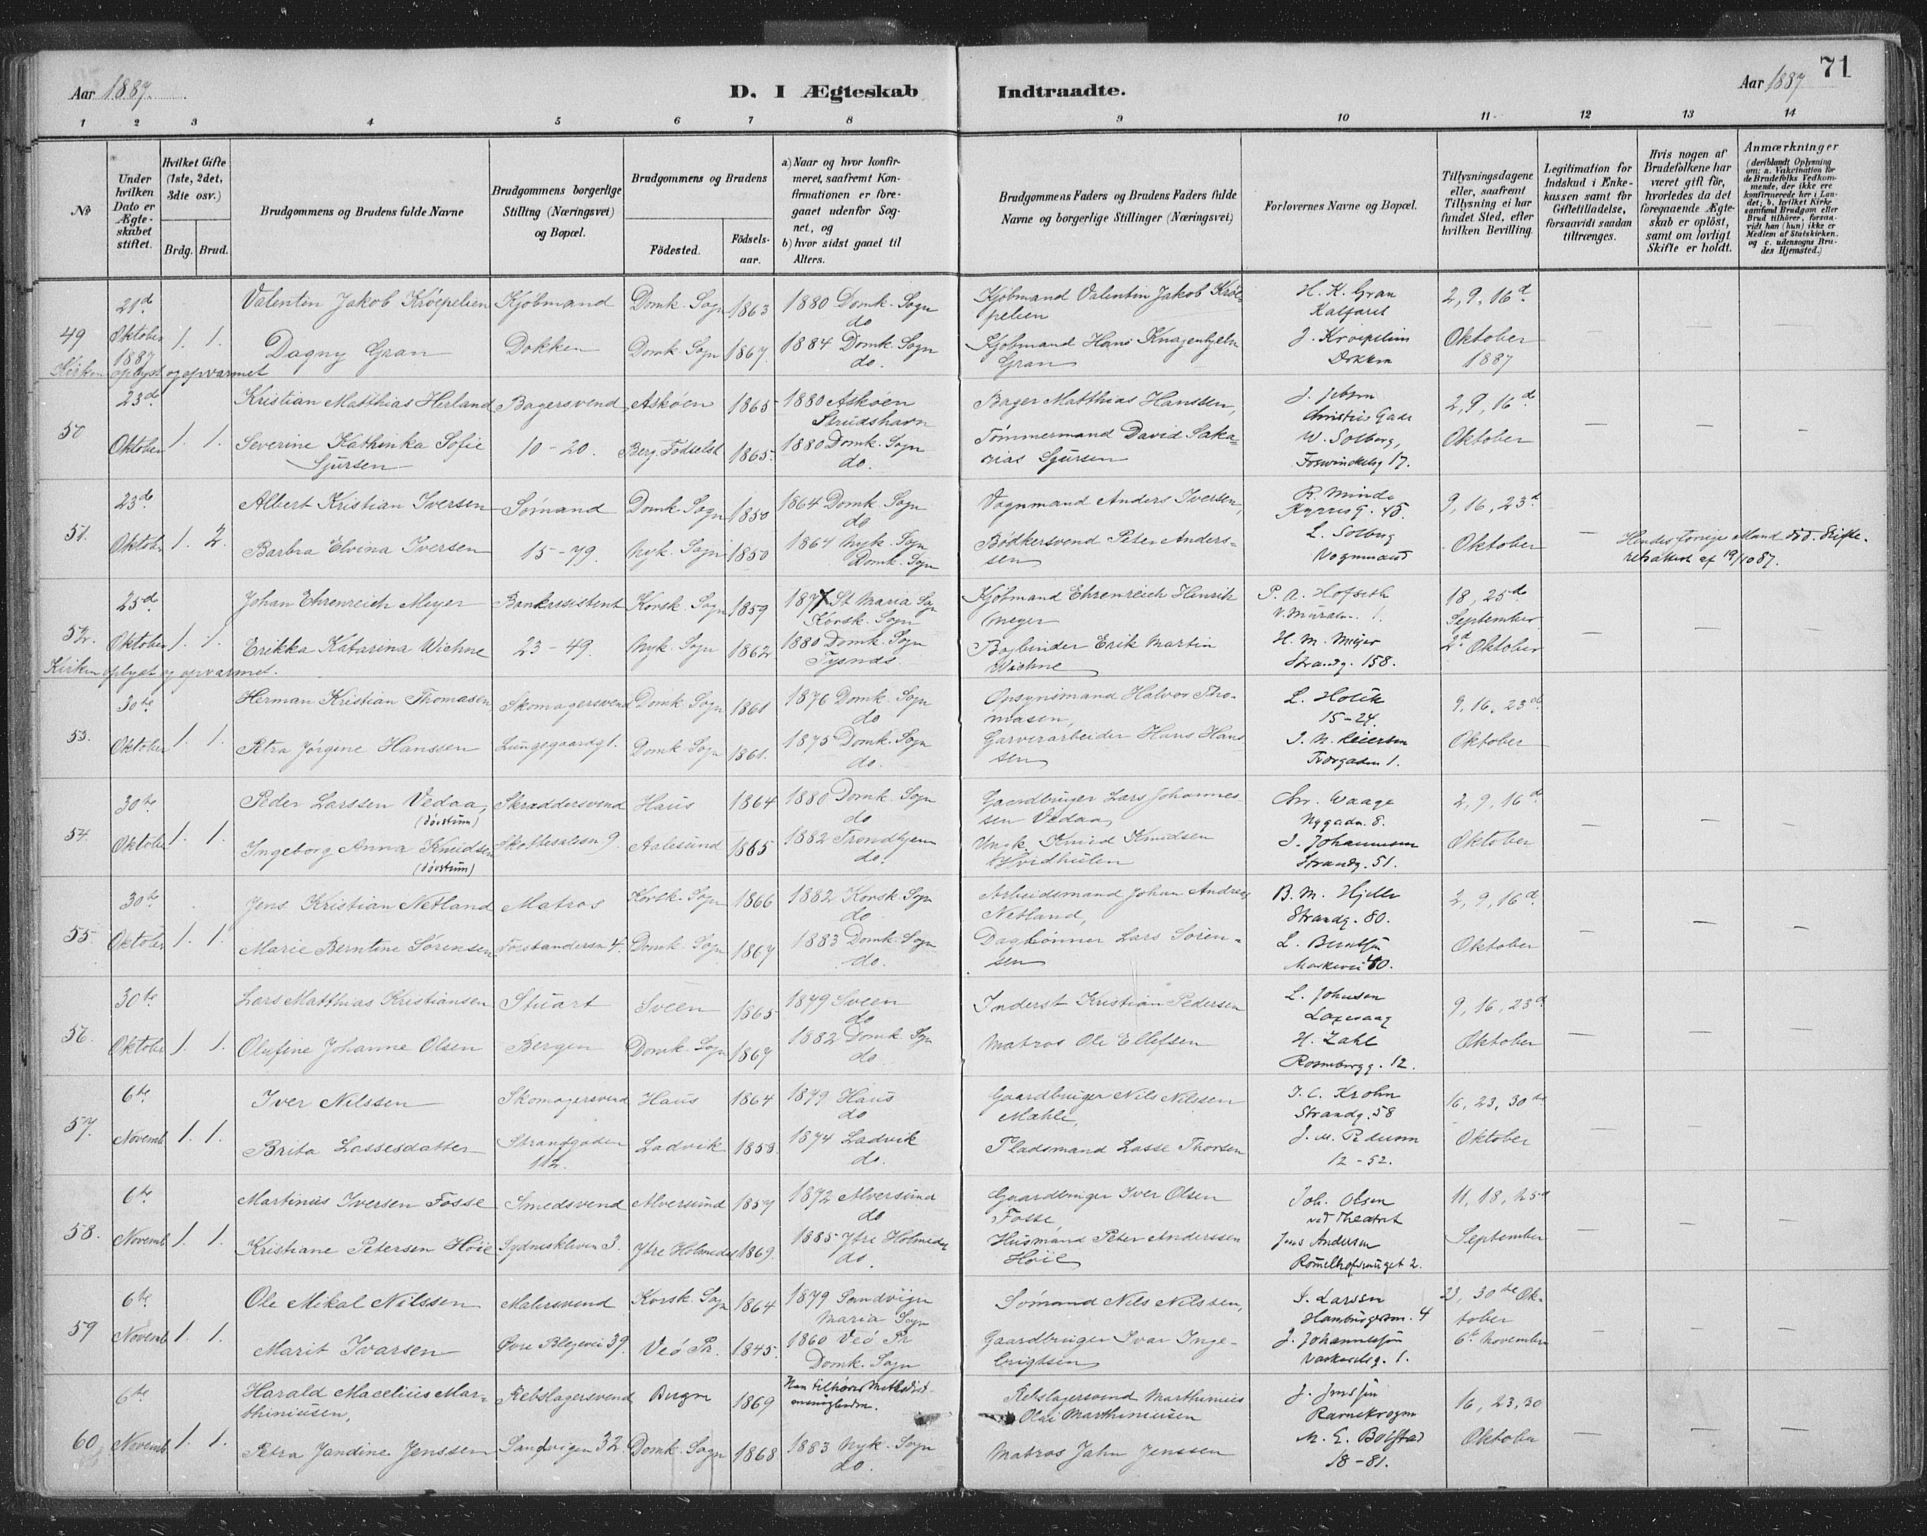 Aar 1887.
D. I Ægteskab Indtraadte.
Aar 1887 71
1 2 3 4 5 6 7 8 9 10 11 12 13 14
No
Under hvilken Dato er Ægteskabet stiftet.
Hvilket Gifte (1ste, 2det, 3die osv.)
Brdg. Brud.
Brudgommens og Brudens fulde Navne
Brudgommens borgerlige Stilling (Næringsvei) og Bopæl.
Brudgommens og Brudens
Fødested. Fødselsaar.
a) Naar og hvor konfirmeret, saafremt Konfirmationen er foregaaet udenfor Sognet, og
b) hvor sidst gaaet til Alters.
Brudgommens Faders og Brudens Faders fulde Navne og borgerlige Stillinger (Næringsvei)
Forlovernes Navne og Bopæl.
Tillysningsdagene eller, saafremt Tillysning ei har fundet Sted, efter hvilken Bevilling.
Legitimation for Indskud i Enkekassen samt for Giftetilladelse, forsaavidt saadan tiltrænges.
Hvis nogen af Brudefolkene har været gift før, hvorledes da det foregaaende Ægteskab er opløst, samt om lovligt Skifte er holdt.
Anmærkninger (deriblandt Oplysning om: a. Vakcination for de Brudefolks Vedkommende, der ikke ere konfirmerede her i Landet; b. hvilket Kirkesamfund Brudgom eller Brud tilhører, forsaavidt han (hun) ikke er Medlem af Statskirken. og c. udensogns Brudes Hjemsted.)
21d Valentin Jakob Kröepelien Kjöbmand Domk. Sogn 1863 1880 Domk. Sogn Kjöbmand Valentin Jakob Kröe- H. K. Gran 2, 9, 16d
do pelien Kalfaret
49 Oktober 1. 1. Dagny Gran Dokken Domk Sogn 1867. 1884 Domk. Sogn Kjöbmand Hans Knagenhjelm J. Kroepelien Oktober
1887 do. Gran Dokken 1887
Kirken oplyst og opvarmet
23de Kristian Matthias Herland Bagersvend Asköen 1865 1880 Asköen Bager Matthias Hanssen, J. Jebsen 2, 9, 16d
Strudshavn Christies Gade
50 Oktober 1. 1. Severine Kathinka Sofie 10-20. Berg. Födselst 1865. 1880 Domk. Sogn Tömmermand David Saka- W. Solberg, Oktober
Sjursen do. rias Sjursen Foswinckelsg 17.
23de Albert Kristian Iversen Sömand Domk. Sogn 1850 1864 Domk. Sogn Vognmand Anders Iversen, R. Minde 9, 16, 23d
do Kyrresg. 45.
51. Oktober 1. 2. Barbra Elvina Iversen 15-79. Nyk. Sogn 1850 1864 Nyk. Sogn Bödkersvend Peter Anders- L. Solberg Oktober Hendes forrige Mand död. Skifte-
Domk. Sogn sen Vognmand retsattest af 19/10 87.
25d Johan Ehrenreich Meyer Bankassistent Korsk. Sogn 1859 1877 St Maria Sogn Kjöbmand Ehrenreich Henrik P. A. Hofseth 18, 25de
Korsk. Sogn Meyer V. Muralm. 1. September
52. Oktober 1. 1. Erikka Katarina Wiehne 23-49. Nyk. Sogn 1862 1880 Domk. Sogn Bogbinder Erik Martin H. M. Meyer 2d Oktober
Tysnæs. Wiehne Strandg. 158.
Kirken oplyst og opvarmet.
30te Herman Kristian Thomasen Skomagersvend Domk. Sogn 1861 1876 Domk. Sogn Opsynsmand Halvor Tho- L. Holck 9, 16, 23de
do masen, 15-24.
53. Oktober 1. 1. Petra Jörgine Hanssen Lungegaardsg 1. Domk. Sogn 1861. 1875 Domk. Sogn Garverarbeider Hans Hans J. N. Reiersen Oktober
do. sen Torvgaden 1.
30te Peder Larssen Vedaa, Skræddersvend Haus 1864 1880 Domk. Sogn Gaardbruger Lars Johannes- Chr. Waage 2, 9, 16d
(dövstum) do sen Vedaa, Nygadn. 8.
54. Oktober 1. 1. Ingeborg Anna Knudsen Skottesalsen 9. Aalesund 1865 1882 Trondhjem Ungk. Knud Knudsen J. Johannesen Oktober
(dövstum) do. Strandg. 51.
30te Jens Kristian Netland Matros Korsk. Sogn 1866 1882 Korsk. Sogn Arbeidsmand Johan Andreas B. M. Hjelle 2, 9, 16d
do Netland, Strandg. 80.
55 Oktober 1. 1. Marie Berntine Sörensen Forstandersm 4. Domk. Sogn 1867 1883 Domk. Sogn Daglönner Lars Sören- L. Berntsen Oktober
do. sen Markevei 40.
30te Lars Matthias Kristiansen Stuart Sveen 1865 1879 Sveen Inderst Kristian Pedersen L. Johnsen 9, 16, 23d
do Laxevaag
56. Oktober 1. 1. Olufine Johanne Olsen Bergen Domk. Sogn 1867 1882 Domk. Sogn Matros Ole Ellefsen H. Zahl Oktober
do. Rosenbergg. 12.
6te Iver Nilssen Skomagersvend Haus 1864 1879 Haus Gaardbruger Nils Nilssen J. C. Krohn 16, 23, 30te
do Mahle, Strandg. 58
57. Novemb 1. 1. Brita Lassesdatter Strandgaden Ladvik 1858 1874 Ladvik Pladsmand Lasse Thorsen J. M. Pedersen Oktober
112. do. 12-52.
6te Martinus Iversen Fosse Smedsvend Alversund 1857 1872 Alversund Gaardbruger Iver Olsen Joh. Olsen 11, 18, 25d
do Fosse, ved Theatret
58. Novemb 1. 1. Kristiane Petersen Höie Sydneskleven 3. Ytre Holmedal 1869. 1885 Ytre Holmedal Husmand Peter Anderssen Jens Andersen September
do. Höie
6te Ole Mikal Nilssen Malersvend Korsk. Sogn 1864 1879 Sandvigen Sömand Nils Nilssen, S. Larsen 23, 30te Ok-
Maria Sogn 4 tober
59 Novemb 1. 1. Marit Ivarsen Övre Blegevei 39. Veö Pr. 1845. 1860 Veö Pr Gaardbruger Ivar Inge- J. Johannessen 6te November
Domk. Sogn brigtsen
6te Harald Macelius Mar- Rebslagersvend Bergen 1869 Han tilhører Methodist- Rebslagersvend Marthinius J. Jensen 16, 23, 30
thiniusen, menigheden. Olai Marthiniusen
60 Novemb 1. 1. Petra Jandine Jenssen Sandvigen 32. Domk. Sogn 1868 1883 Nyk. Sogn Matros Jahn Jenssen M. E. Bolstad Oktober
do. 18-81.